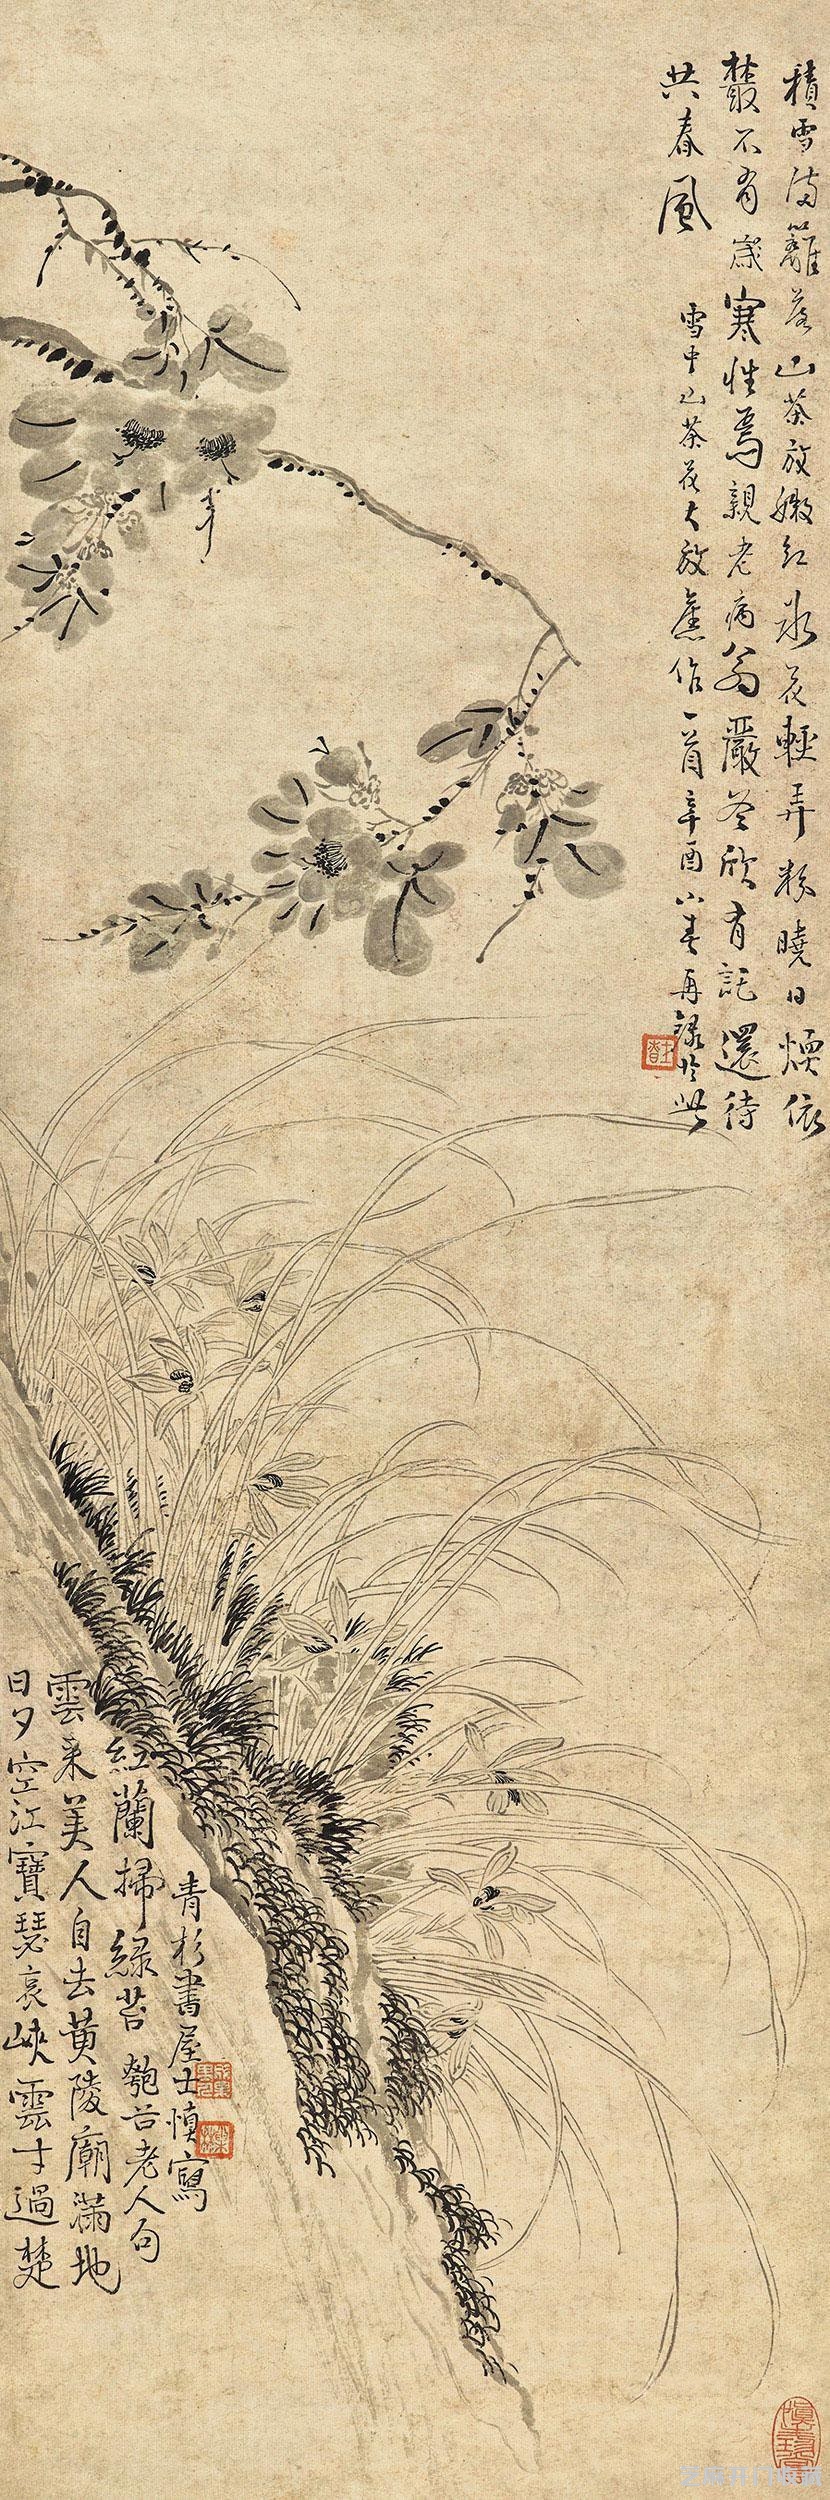 積雪満籬落山茶放嫩紅冰花輕弄粉曉日煗依
叢不有歲寒性焉親老病翁嚴冬欣有託還待
共春風
雪中山茶花大放舊作一首辛酉小春再録於此
日夕空江寶瑟哀峽雲才過楚
雲來美人自去黄陵廟滿地
紅蘭掃緑苔 匏谷老人句
青杉書屋士慎寫